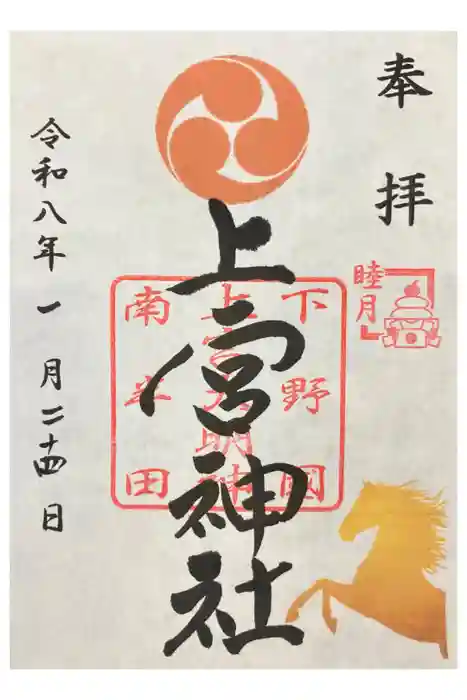 奉拝
睦月
上宮神社
下野國
上宮大明神
南半田
令和八年一月二十四日